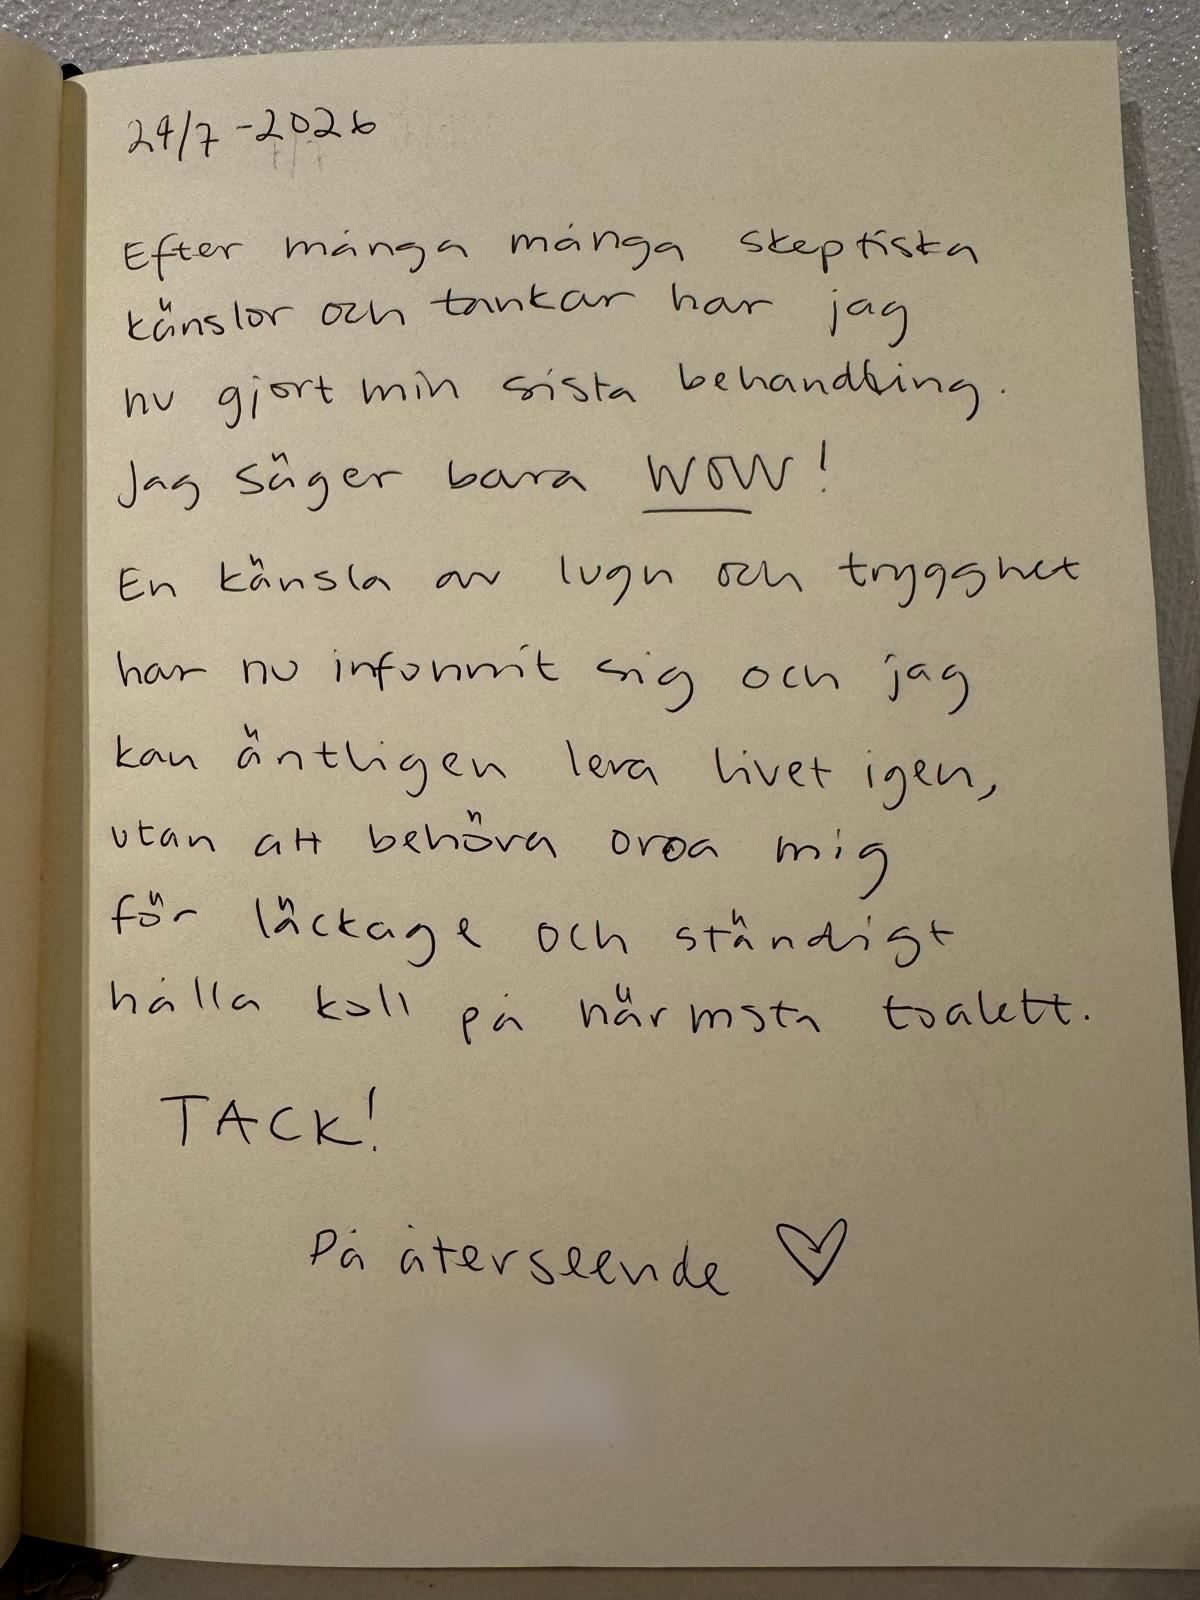 24/7-2026
Efter många många skeptiska
känslor och tankar har jag
nu gjort min sista behandling.
Jag säger bara WOW!
En känsla av lugn och trygghet
har nu infunnit sig och jag
kan äntligen leva livet igen,
utan att behöva oroa mig
för läckage och ständigt
hålla koll på närmsta toalett.
TACK!
På återseende ♡